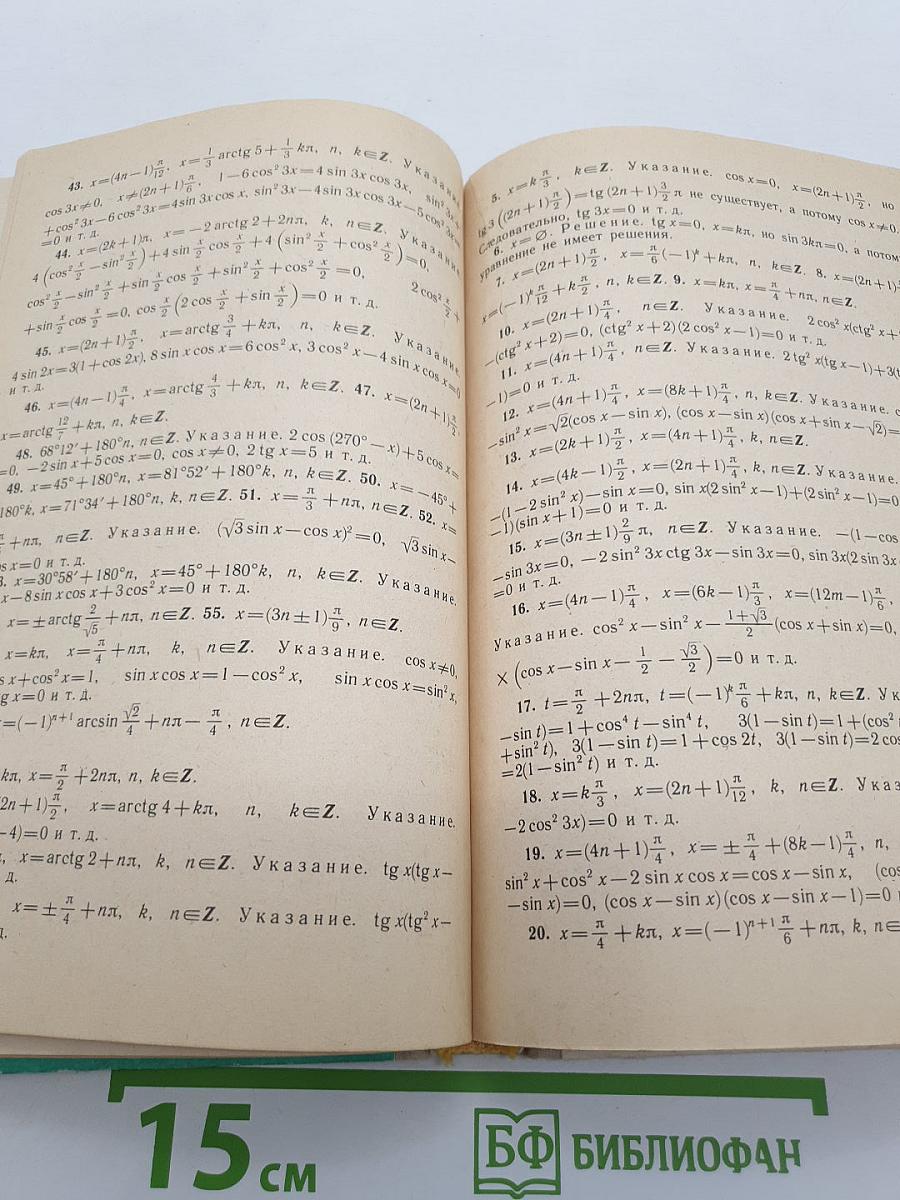 43. x=(4n−1)π/12, x=1/3 arctg 5+1/3 kπ, n, k∈Z. Указание.
cos 3x≠0, x≠(2n+1)π/6, 1−6 cos² 3x=4 sin 3x cos 3x, sin² 3x+
+cos² 3x−6 cos² 3x=4 sin 3x cos x, sin² 3x−4 sin 3x cos 3x−5 cos² 3x=
=0 и т. д.
44. x=(2k+1)π, x=−2 arctg 2+2nπ, k, n∈Z. Указание.
4(cos² x/2−sin² x/2)+4 sin x/2 cos x/2+4(sin² x/2+cos² x/2)=0,
cos² x/2−sin² x/2+sin x/2 cos x/2+sin² x/2+cos² x/2=0, 2 cos² x/2+
+sin x/2 cos x/2=0, cos x/2(2 cos x/2+sin x/2)=0 и т. д.
45. x=(2n+1)π/2, x=arctg 3/4+kπ, n, k∈Z. Указание.
4 sin 2x=3(1+cos 2x), 8 sin x cos x=6 cos² x, 3 cos² x−4 sin x cos x=0
и т. д.
46. x=(4n−1)π/4, x=arctg 4/3+kπ, n, k∈Z. 47. x=(2n+1)π/2,
x=arctg 12/7+kπ, n, k∈Z.
48. 68°12′+180°n, n∈Z. Указание. 2 cos (270°−x)+5 cos x=
=0, −2 sin x+5 cos x=0, cos x≠0, 2 tg x=5 и т. д.
49. x=45°+180°n, x=81°52′+180°k, n, k∈Z. 50. x=−45°+
180°k, x=71°34′+180°n, k, n∈Z. 51. x=π/3+nπ, n∈Z. 52. x=
+nπ, n∈Z. Указание. (√3 sin x−cos x)²=0, √3 sin x−
s x=0 и т. д.
3. x=30°58′+180°n, x=45°+180°k, n, k∈Z. Указание.
x−8 sin x cos x+3 cos² x=0 и т. д.
x=±arctg 2/√5+nπ, n∈Z. 55. x=(3n±1)π/9, n∈Z.
x=kπ, x=π/4+nπ, k, n∈Z. Указание. cos x≠0,
s x+cos² x=1, sin x cos x=1−cos² x, sin x cos x=sin² x,
tg x=0 и т. д.
=(−1)ⁿ⁺¹ arcsin √2/4+nπ−π/4, n∈Z.
kπ, x=π/2+2nπ, n, k∈Z.
(2n+1)π/2, x=arctg 4+kπ, n, k∈Z. Указание.
−4)=0 и т. д.
, x=arctg 2+nπ, k, n∈Z. Указание. tg x(tg x−
д.
x=±π/4+nπ, k, n∈Z. Указание. tg x(tg² x−
5. x=k π/3, k∈Z. Указание. cos x=0, x=(2n+1)π/2, но
tg 3((2n+1)π/2)=tg (2n+1)3/2 π не существует, а потому cos x≠0.
Следовательно, tg 3x=0 и т. д.
6. x=∅. Решение. tg x=0, x=kπ, но sin 3kπ=0, а потому
уравнение не имеет решения.
7. x=(2n+1)π/2, x=π/6(−1)ᵏ+kπ, n, k∈Z. 8. x=(2n+1)
x=(−1)ᵏπ/12+kπ/2, n, k∈Z. 9. x=kπ, x=π/4+nπ, n∈Z.
10. x=(2n+1)π/4, n∈Z. Указание. 2 cos² x(ctg² x+
−(ctg² x+2)=0, (ctg² x+2)(2 cos² x−1)=0 и т. д.
11. x=(4n+1)π/4, n∈Z. Указание. 2 tg² x(tg x−1)+3(t
−1)=0 и т. д.
12. x=(4n+1)π/4, x=(8k+1)π/4, n, k∈Z. Указание. c
−sin² x=√2(cos x−sin x), (cos x−sin x)(cos x+sin x−√2)=
13. x=(2k+1)π/2, x=(4n+1)π/4, k, n∈Z.
14. x=(4k−1)π/2, x=(2n+1)π/4, k, n∈Z. Указание.
−(1−2 sin² x)−sin x=0, sin x(2 sin² x−1)+(2 sin² x−1)=0
−1)(sin x+1)=0 и т. д.
15. x=(3n±1)2/9 π, n∈Z. Указание. −(1−cos
−sin 3x=0, −2 sin² 3x ctg 3x−sin 3x=0, sin 3x(2 sin 3x
=0 и т. д.
16. x=(4n−1)π/4, x=(6k−1)π/3, x=(12m−1)π/6,
Указание. cos² x−sin² x−(1+√3)/2 (cos x+sin x)=0,
×(cos x−sin x−1/2−√3/2)=0 и т. д.
17. t=π/2+2nπ, t=(−1)ᵏπ/6+kπ, n, k∈Z. Ук
−sin t)=1+cos⁴ t−sin⁴ t, 3(1−sin t)=1+(cos²
+sin² t), 3(1−sin t)=1+cos 2t, 3(1−sin t)=2 cos
=2(1−sin² t) и т. д.
18. x=k π/3, x=(2n+1)π/12, k, n∈Z. Указа
−2 cos² 3x)=0 и т. д.
19. x=(4n+1)π/4, x=±π/4+(8k−1)π/4, n,
sin² x+cos² x−2 sin x cos x=cos x−sin x, (cos
−sin x)=0, (cos x−sin x)(cos x−sin x−1)=0
20. x=π/4+kπ, x=(−1)ⁿ⁺¹π/6+nπ, k, n∈
15 см
БФ БИБЛИОФАН